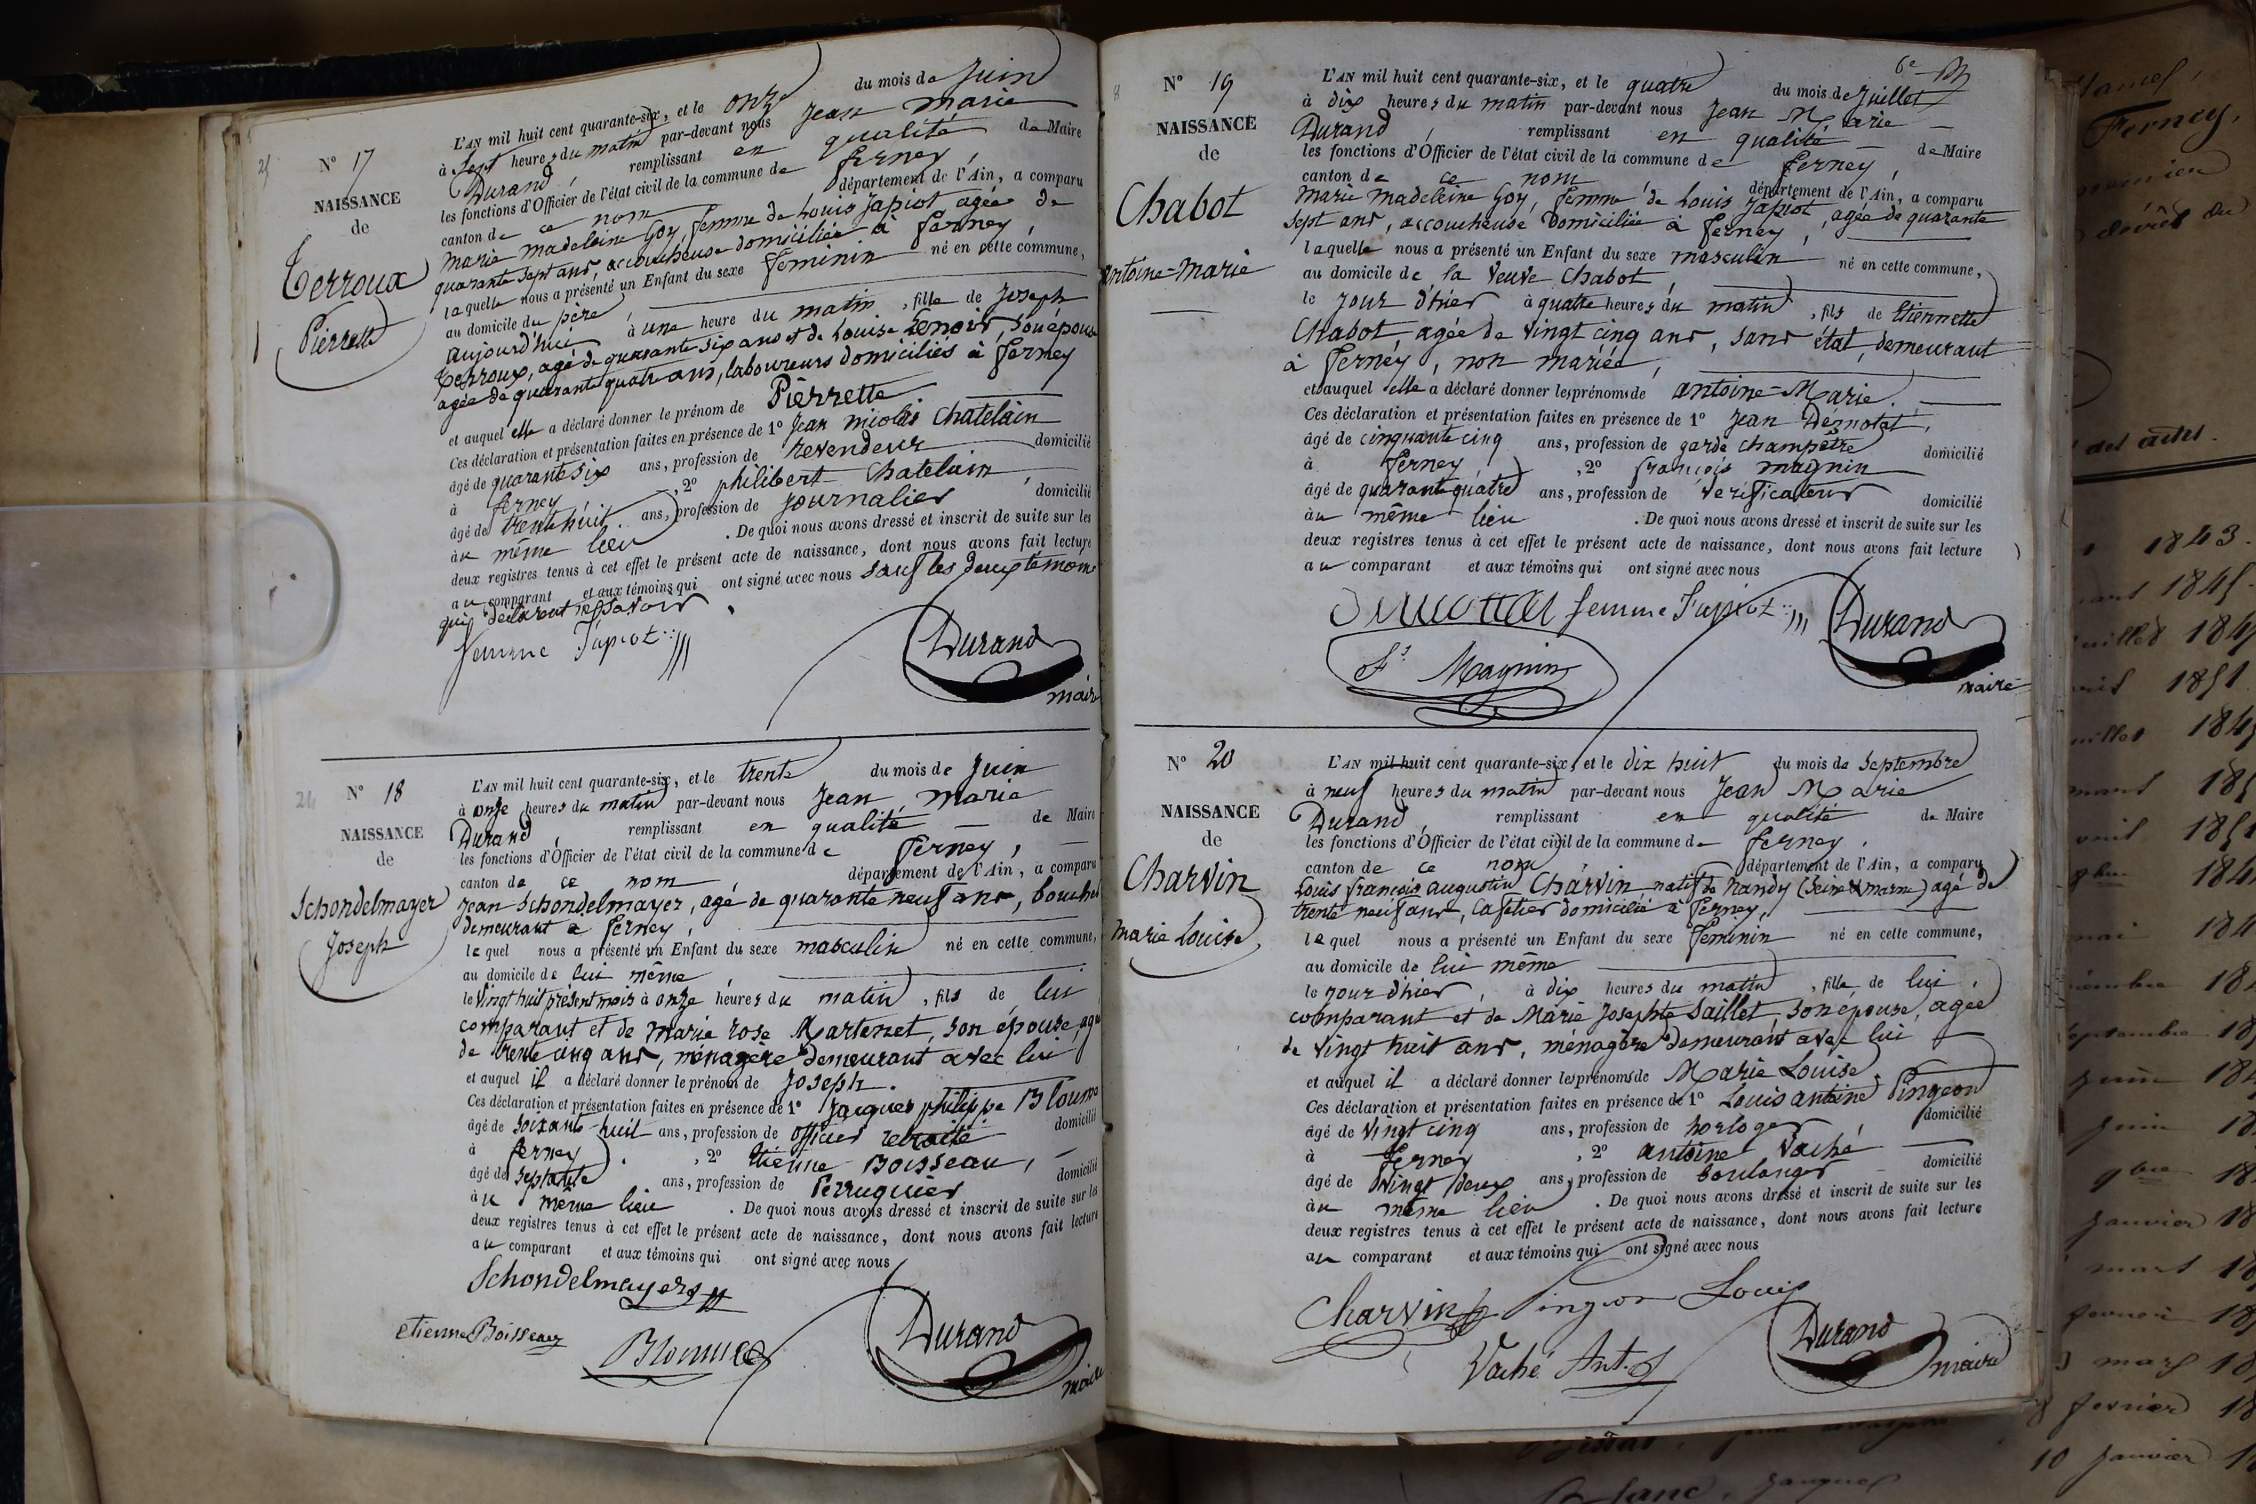 N° 17
NAISSANCE
de
Terroux
Pierrette
L'AN mil huit cent quarante-six, et le onze du mois de Juin
à Sept heures du matin par-devant nous Jean Marie
Durand, remplissant en qualité de Maire
les fonctions d'Officier de l'état civil de la commune de Ferney,
canton de ce nom département de l'Ain, a comparu
Marie Madeleine Goy femme de Louis Japiot agée de
quarante sept ans, accoucheuse domiciliée à Ferney,
laquelle nous a présenté un Enfant du sexe féminin né en cette commune,
au domicile du père,
aujourd'hui à une heure du matin, fille de Joseph
Terroux, agé de quarante six ans et de Louise Lenoir, son épouse
agée de quarante quatre ans, laboureurs domiciliés à Ferney
et auquel elle a déclaré donner le prénom de Pierrette
Ces déclaration et présentation faites en présence de 1° Jean Nicolas Chatelain
âgé de quarante six ans, profession de revendeur domicilié
à Ferney, 2° Philibert Chatelain
âgé de trente huit ans, profession de Journalier domicilié
au même lieu. De quoi nous avons dressé et inscrit de suite sur les
deux registres tenus à cet effet le présent acte de naissance, dont nous avons fait lecture
au comparant et aux témoins qui ont signé avec nous sauf les deux témoins
qui déclarent ne savoir.
femme Japiot
Durand
maire
N° 18
NAISSANCE
de
Schondelmayer
Joseph
L'AN mil huit cent quarante-six, et le trente du mois de Juin
à onze heures du matin par-devant nous Jean Marie
Durand, remplissant en qualité de Maire
les fonctions d'Officier de l'état civil de la commune de Ferney,
canton de ce nom département de l'Ain, a comparu
Jean Schondelmayer, agé de quarante neuf ans, boucher
demeurant à Ferney,
lequel nous a présenté un Enfant du sexe masculin né en cette commune,
au domicile de lui même
le vingt huit présent mois à onze heures du matin, fils de lui
comparant et de Marie Rose Martenet, son épouse, agée
de trente cinq ans, ménagère demeurant avec lui
et auquel il a déclaré donner le prénom de Joseph.
Ces déclaration et présentation faites en présence de 1° Jacques Philippe
âgé de soixante-huit ans, profession de officier retraité domicilié
à Ferney, 2° Etienne Boisseau,
âgé de septante ans, profession de Perruquier domicilié
au même lieu. De quoi nous avons dressé et inscrit de suite sur les
deux registres tenus à cet effet le présent acte de naissance, dont nous avons fait lecture
au comparant et aux témoins qui ont signé avec nous
Schondelmayer
etienne Boisseau
Durand
maire
6e
N° 19
NAISSANCE
de
Chabot
Antoine-Marie
L'AN mil huit cent quarante-six, et le quatre du mois de Juillet
à dix heures du matin par-devant nous Jean Marie
Durand, remplissant en qualité de Maire
les fonctions d'Officier de l'état civil de la commune de Ferney,
canton de ce nom département de l'Ain, a comparu
Marie Madeleine Goy, femme de Louis Japiot, agée de quarante
sept ans, accoucheuse domiciliée à Ferney,
laquelle nous a présenté un Enfant du sexe masculin né en cette commune,
au domicile de la veuve Chabot,
le jour d'hier à quatre heures du matin, fils de Etiennette
Chabot agée de vingt cinq ans, sans état, demeurant
à Ferney, non mariée,
et auquel elle a déclaré donner les prénoms de Antoine-Marie.
Ces déclaration et présentation faites en présence de 1° Jean
âgé de cinquante cinq ans, profession de garde champêtre domicilié
à Ferney, 2° François Magnin
âgé de quarante quatre ans, profession de vérificateur domicilié
au même lieu. De quoi nous avons dressé et inscrit de suite sur les
deux registres tenus à cet effet le présent acte de naissance, dont nous avons fait lecture
au comparant et aux témoins qui ont signé avec nous
femme Japiot
Durand
maire
Fs Magnin
N° 20
NAISSANCE
de
Charvin
Marie Louise
L'AN mil huit cent quarante-six, et le dix huit du mois de Septembre
à neuf heures du matin par-devant nous Jean Marie
Durand, remplissant en qualité de Maire
les fonctions d'Officier de l'état civil de la commune de Ferney,
canton de ce nom département de l'Ain, a comparu
Louis François Augustin Charvin natif de Nandy (Seine & Marne) agé de
trente neuf ans, cafetier domicilié à Ferney,
lequel nous a présenté un Enfant du sexe féminin né en cette commune,
au domicile de lui même
le jour d'hier, à dix heures du matin, fille de lui,
comparant et de Marie Josephte Saillet, son épouse, agée
de vingt huit ans, ménagère demeurant avec lui
et auquel il a déclaré donner les prénoms de Marie Louise.
Ces déclaration et présentation faites en présence de 1° Louis Antoine Pingeon
âgé de vingt cinq ans, profession de horloger domicilié
à Ferney, 2° Antoine Vaché
âgé de vingt deux ans, profession de boulanger domicilié
au même lieu. De quoi nous avons dressé et inscrit de suite sur les
deux registres tenus à cet effet le présent acte de naissance, dont nous avons fait lecture
au comparant et aux témoins qui ont signé avec nous
Charvin Pingeon Louis
Vaché Ant.
Durand
maire
Ferney,
des actes.
1843.
1845.
1851
10 Janvier